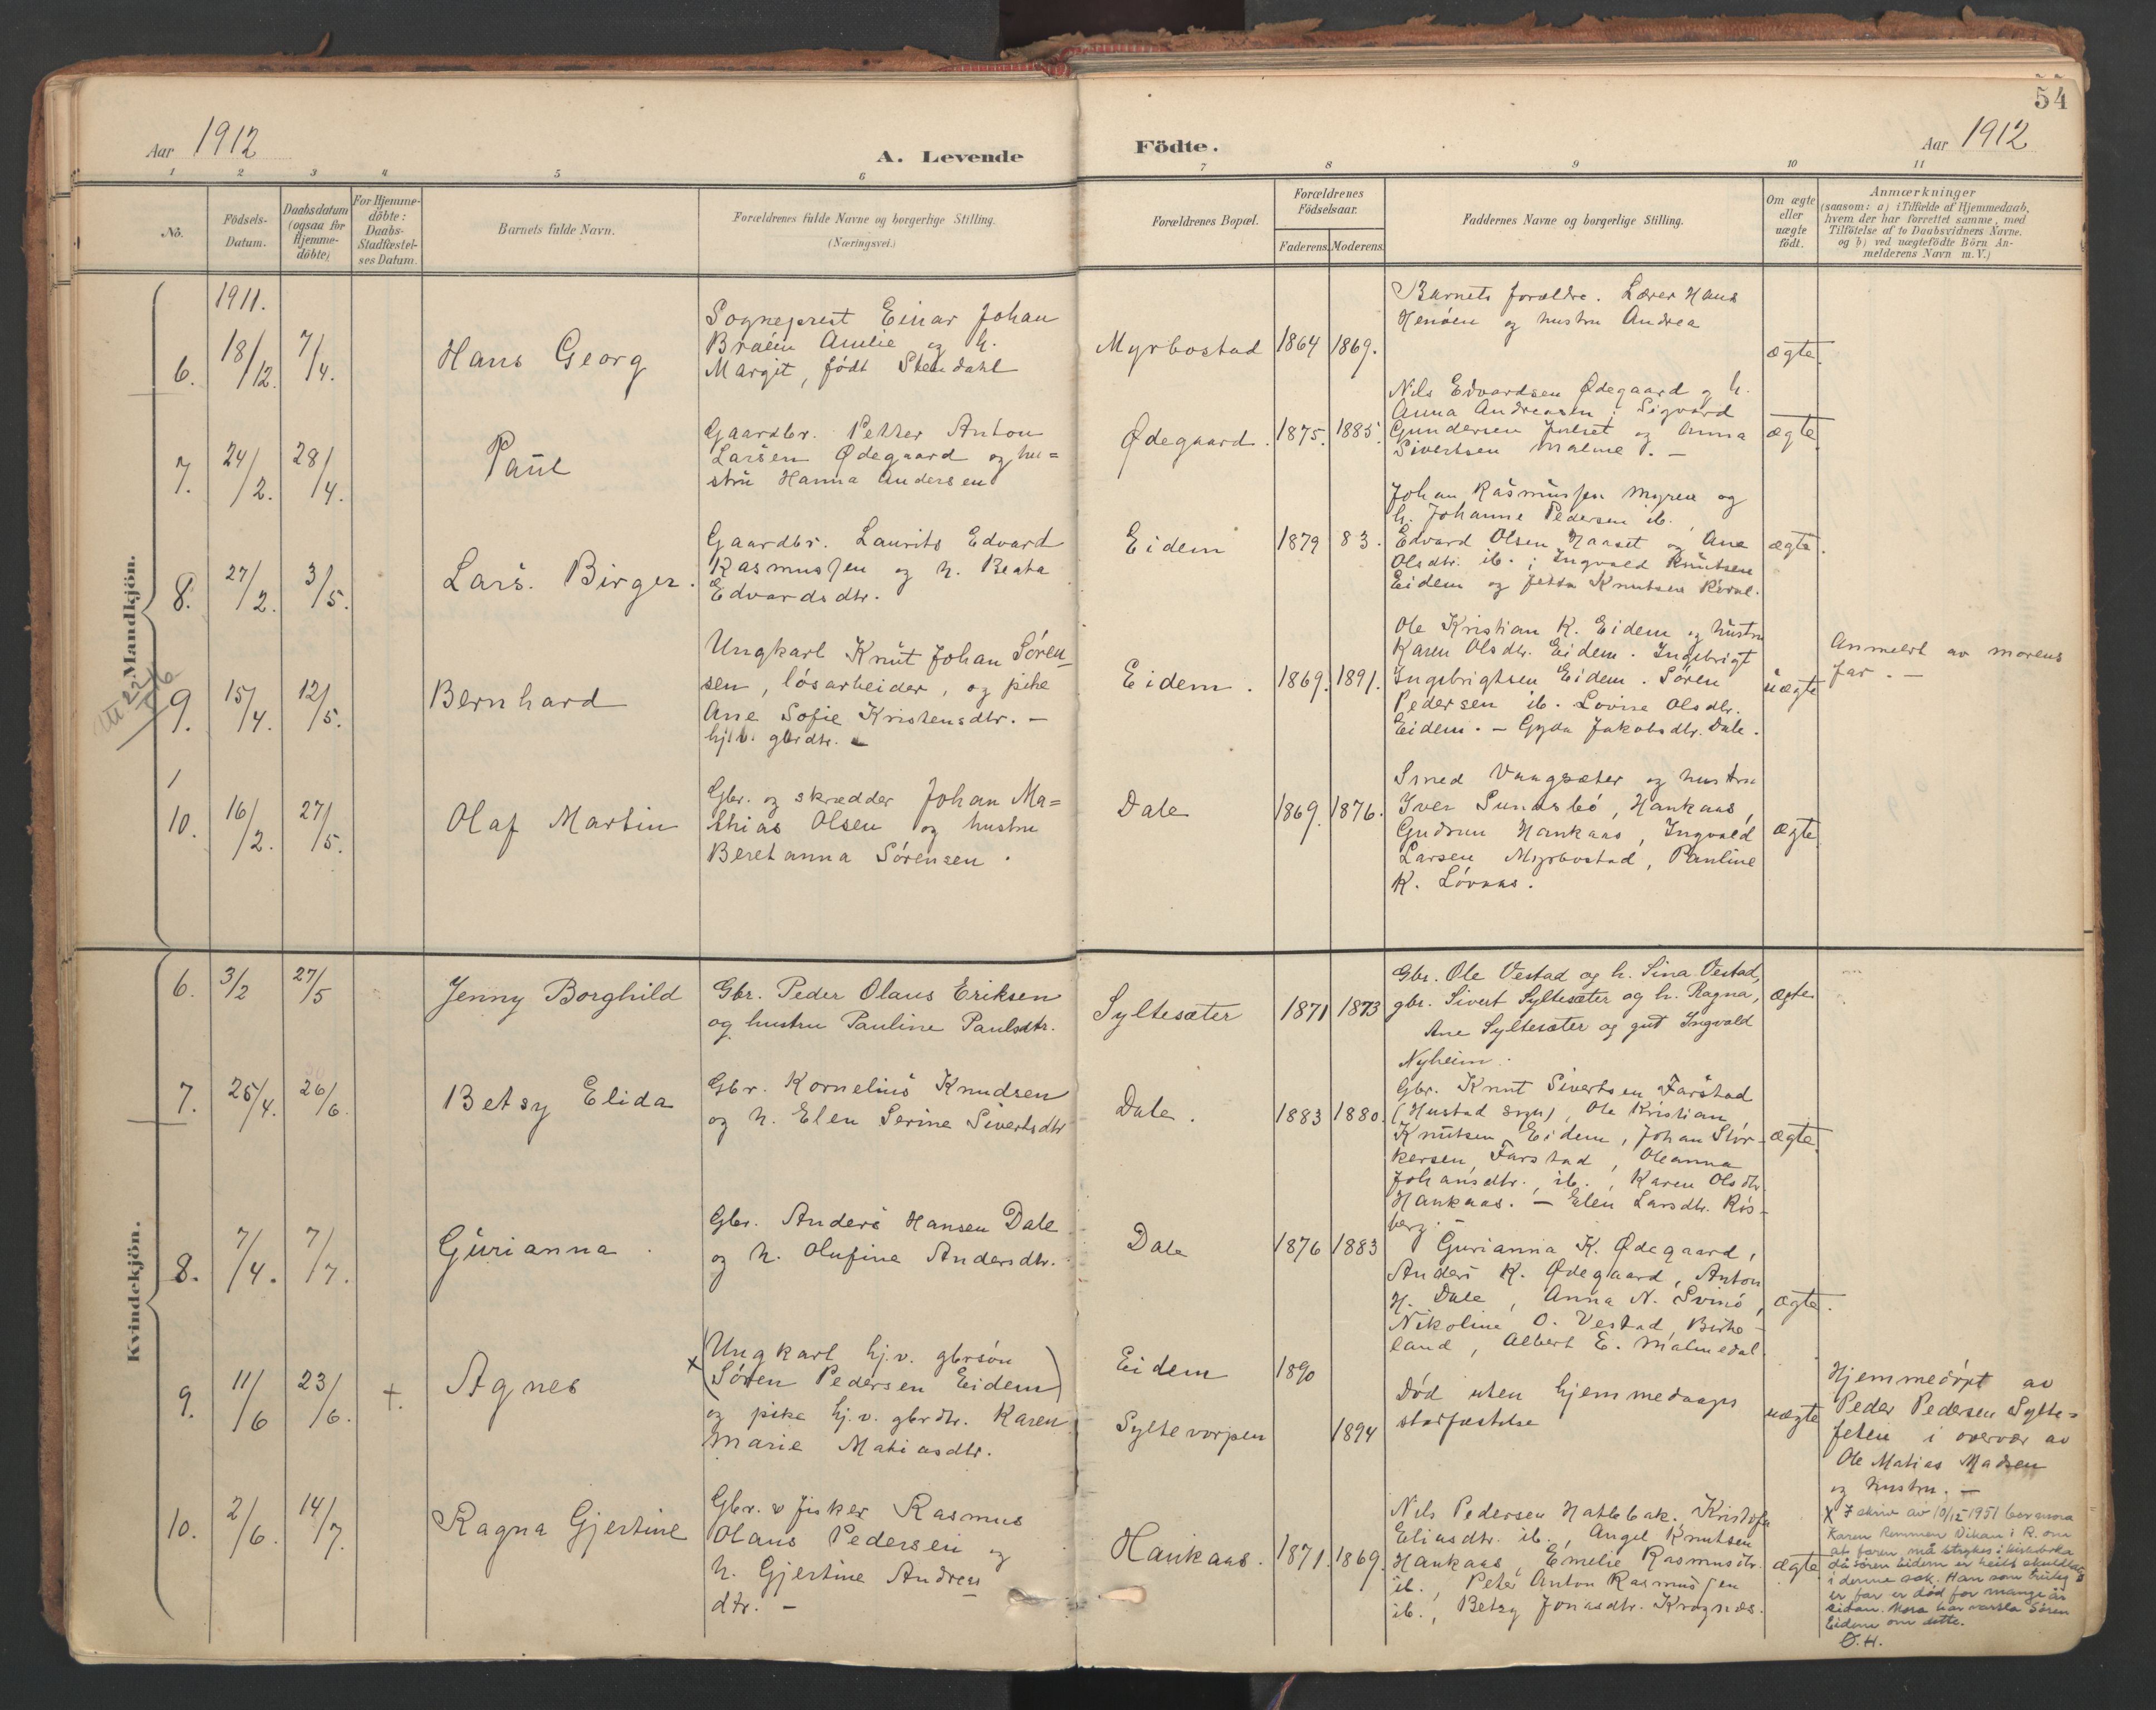 54
Aar 1912
A. Levende
Födte.
Aar 1912
1 2 3 4 5 6 7 8 9 10 11
No.
Födsels-
Datum.
Daabsdatum
(ogsaa for
Hjemme-
döbte)
For Hjemme-
döbte:
Daabs-
Stadfæstel-
ses Datum.
Barnets fulde Navn.
Forældrenes fulde Navne og borgerlige Stilling.
(Næringsvei.)
Forældrenes Bopæl.
Forældrenes
Födselsaar.
Faderens. Moderens.
Faddernes Navne og borgerlige Stilling.
Om ægte
eller
uægte
födt.
Anmærkninger
(saasom: a) i Tilfælde af Hjemmedaab,
hvem der har forrettet samme, med
Tilföielse af to Daabsvidners Navne.
og b) ved uægtefödte Börn An-
melderens Navn m. V.)
Mandkjön.
1911.
6. 18/12. 7/4.
Hans Georg
Sogneprest Einar Johan
Braëin Amelie og h.
Margit, født Stendahl
Myrbostad
1864 1869.
Barnets forældre. Lærer Hans
Henöen og hustru Andrea
ægte.
7. 24/2. 28/4.
Paul
Gaardbr. Petter Anton
Larsen Ødegaard og hu=
stru Hanna Andersen
Ødegaard.
1875. 1885.
Nils Edvardsen Ødegaard og h.
Anna Andreasen; Sigvard
Gundersen og Anna
Sivertsen Malme. —
ægte
8. 27/2. 3/5.
Lars. Birger.
Gaardbr. Laurits Edvard
Rasmussen og h. Beata
Edvardsdtr.
Eidem
1879 83.
Johan Rasmussen Myren og
h. Johanne Pedersen ib.
Edvard Olsen Haaset og Ane
Olsdtr. ib.; Ingvald Knutsen
Eidem og Knutsen
ægte.
9. 15/4. 12/5.
Bernhard
Ungkarl Knut Johan Sören=
sen, lösarbeider, og pike
Ane Sofie Kristensdtr. —
hj.v. gbrdtr. —
Eidem.
1869. 1891.
Ole Kristian K. Eidem og hustru
Karen Olsdtr. Eidem. Ingebrigt
Ingebrigtsen Eidem. Sören
Pedersen ib. Lovise Olsdtr.
Eidem. — Gyda Jakobsdtr. Dale.
uægte
Anmeldt av morens
far. —
10. 16/2. 27/5.
Olaf Martin
Gbr. og skrædder Johan Ma=
thias Olsen og hustru
Beret anna Sörensen.
Dale
1869. 1876.
Smed Vaagsæter og hustru
Iver Sundsbö, Haukaas,
Gudrun Haukaas, Ingvald
Larsen Myrbostad, Pauline
K. Lövaas.
ægte
Kvindekjön.
6. 3/2 27/5
Jenny Borghild
Gbr. Peder Olaus Eriksen
og hustru Pauline Paulsdtr.
Syltesæter
1871 1873
Gbr. Ole Vestad og h. Sina Vestad,
gbr. Sivert Syltesæter og h. Ragna,
Ane Syltesæter og gut Ingvald
Nyheim.
ægte
7. 25/4. 26/6.
Betsy Elida
Gbr. Kornelius Knudsen
og h. Elen Serine Sivertsdtr
Dale.
1883 1880.
Gbr. Knut Sivertsen Farstad
(Hustad sogn), Ole Kristian
Knutsen Eidem, Johan Stör-
kersen Farstad, Oleanna
Johansdtr. ib., Karen Olsdtr.
Haukaas. — Elen Larsdtr. Rös-
berg. —
ægte.
8. 7/4. 7/7.
Gurianna.
Gbr. Anders Hansen Dale
og h. Olufine Andersdtr.
Dale
1876 1883
Gurianna K. Ødegaard,
Anders K. Ødegaard, Anton
H. Dale, Anna N. Svinö,
Nikoline O. Vestad, Birke-
land, Albert E. Malmedal.
ægte.
9. 11/6 23/6. +.
Agnes
x (Ungkarl hj.v. gbrsön
Sören Pedersen Eidem)
og pike hj.v. gbrdtr. Karen
Marie Matiasdtr.
Eidem 1890
Syltevorpen 1894
Död uten hjemmedaaps
stadfæstelse
uægte
Hjemmedöpt av
Peder Pedersen Sylte=
feten i overvær av
Ole Matias Madsen
og hustru. —
10. 2/6. 14/7.
Ragna Gjertine
Gbr. & fisker Rasmus
Olaus Pedersen og
h. Gjertine Andreas
dtr. —
Haukaas.
1871. 1869.
Nils Pedersen Hatlebak. Kristofa
Eliasdtr. ib., Angel Knutsen
Haukaas, Emelie Rasmusdtr.
ib. Peter Anton Rasmussen
ib., Betzy Jonasdtr. Krognæs.
ægte
x I skriv av 10/12 1951 ber mora
Karen Remmen Vikan i R. om
at faren må strykes i kirkeboka
då Sören Eidem er heilt skuldlaus
i denne sak. Han som truleg
er far er död for mange år
sidan. Mora har varsla Sören
Eidem om dette.
O.H.